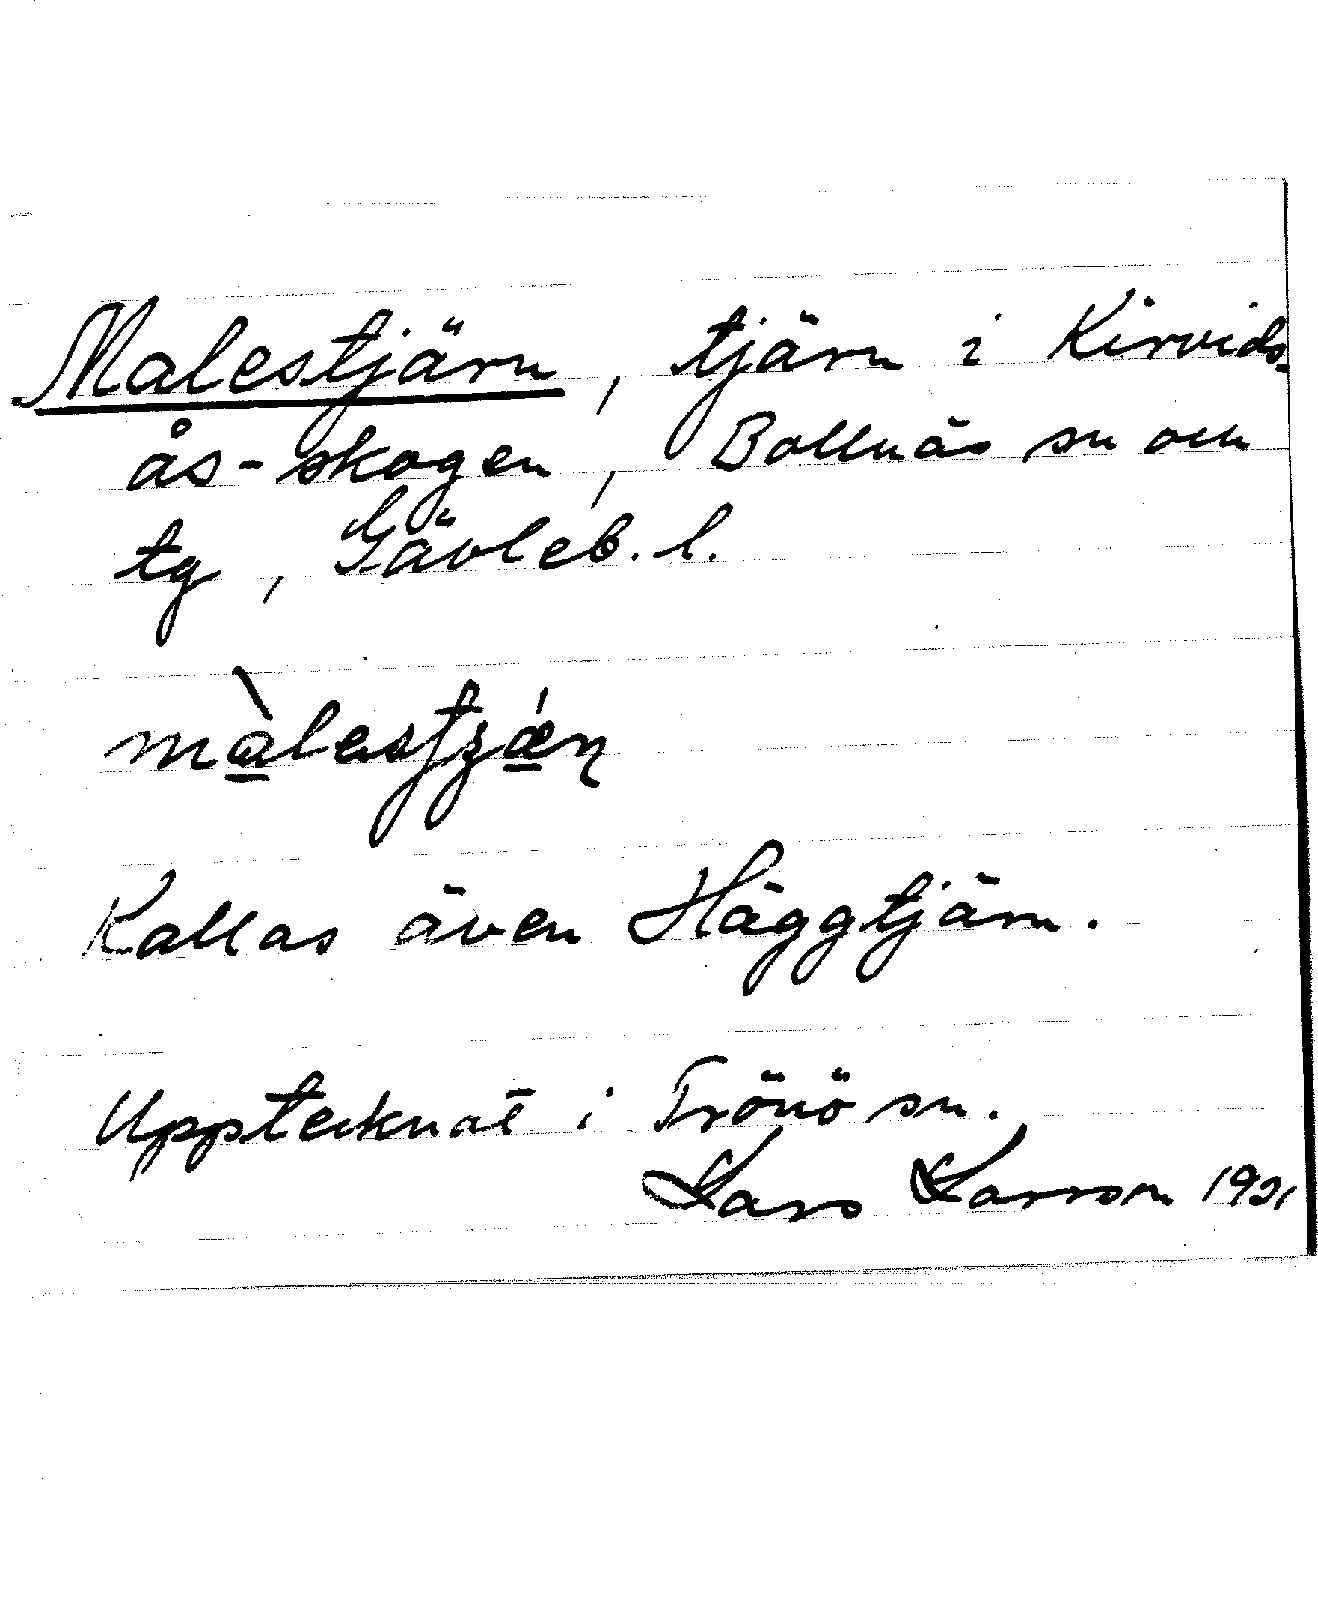 Malestjärn, tjärn i Kirvids-
ås-skogen, Bollnäs sn och
tg, Gävleb. l.
Kallas även Häggtjärn.
Upptecknat i Trönö sn.
Lars Larsson 1921